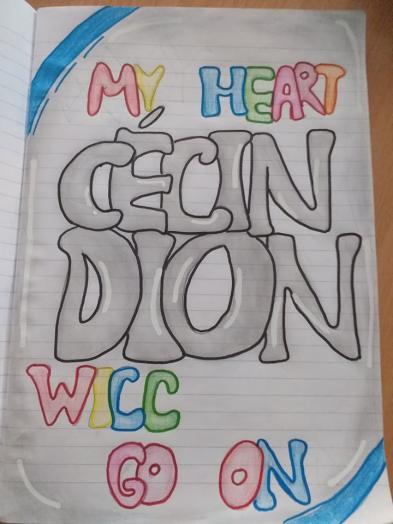 MY HEART
CÉCIN
DION
WICC
GO ON